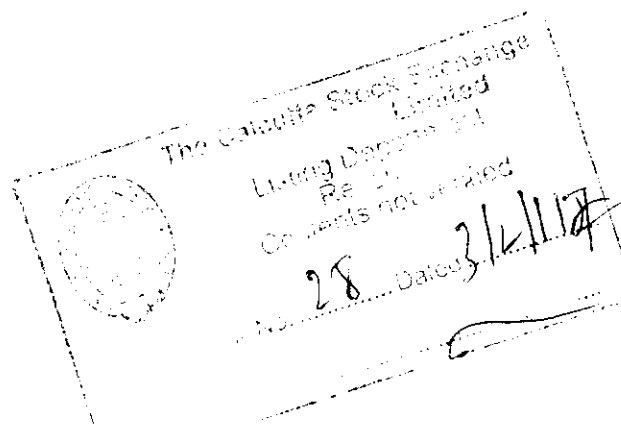 The Calcutta Stock Exchange
Limited
Listing Department
Contents not verified
No. 28 Dated